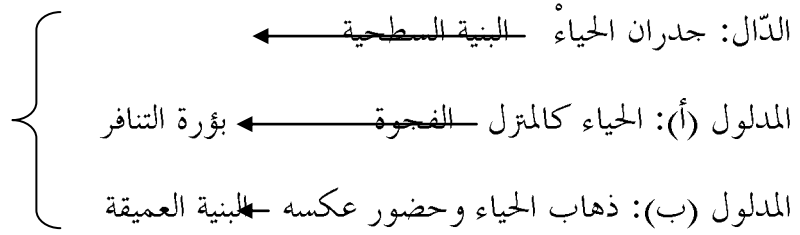 الدّال: جدران الحياءْ البنية السطحية
المدلول (أ): الحياء كالمنزل الفجوة بؤرة التنافر
المدلول (ب): ذهاب الحياء وحضور عكسه البنية العميقة